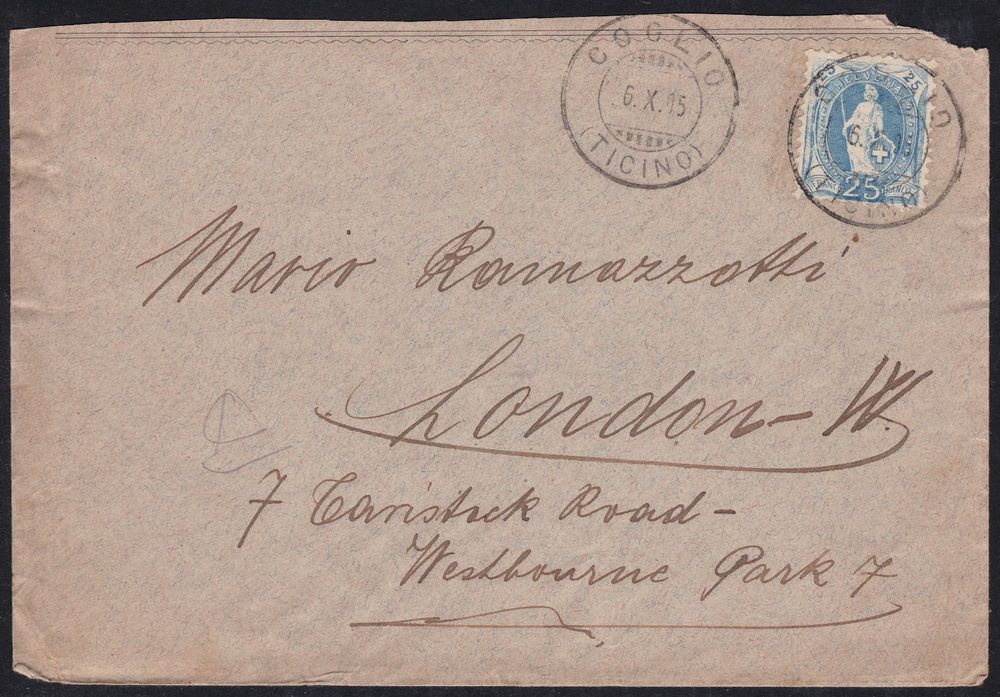 COGLIO
6.X.15
(TICINO)
25 HELVETIA 25
FRANCO 25 FRANCO
Mario Ramazzotti
London-W.
7 Taristock Road-
Westbourne Park 7